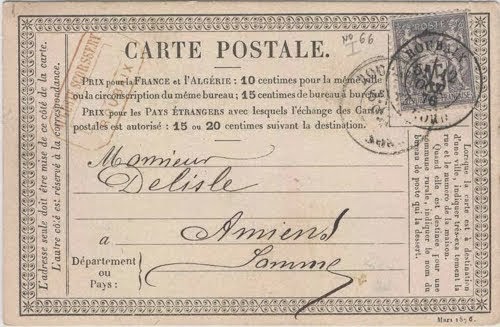 No 66
CARTE POSTALE.
PRIX pour la FRANCE et l'ALGÉRIE : 10 centimes pour la même ville
ou la circonscription du même bureau ; 15 centimes de bureau à bureau.
PRIX pour les PAYS ÉTRANGERS avec lesquels l'échange des Cartes
postales est autorisé : 15 ou 20 centimes suivant la destination.
Monsieur
Delisle
à
Amiens
Somme
Département
ou
Pays :
L'adresse seule doit être mise de ce côté de la carte.
L'autre côté est réservé à la correspondance.
Lorsque la carte est à destination
d'une ville, indiquer très-exactement la
rue et le numéro de la maison.
Quand elle est destinée pour une
commune rurale, indiquer le nom du
bureau de poste qui la dessert.
ROUBAIX
76
NORD
Mars 1876.